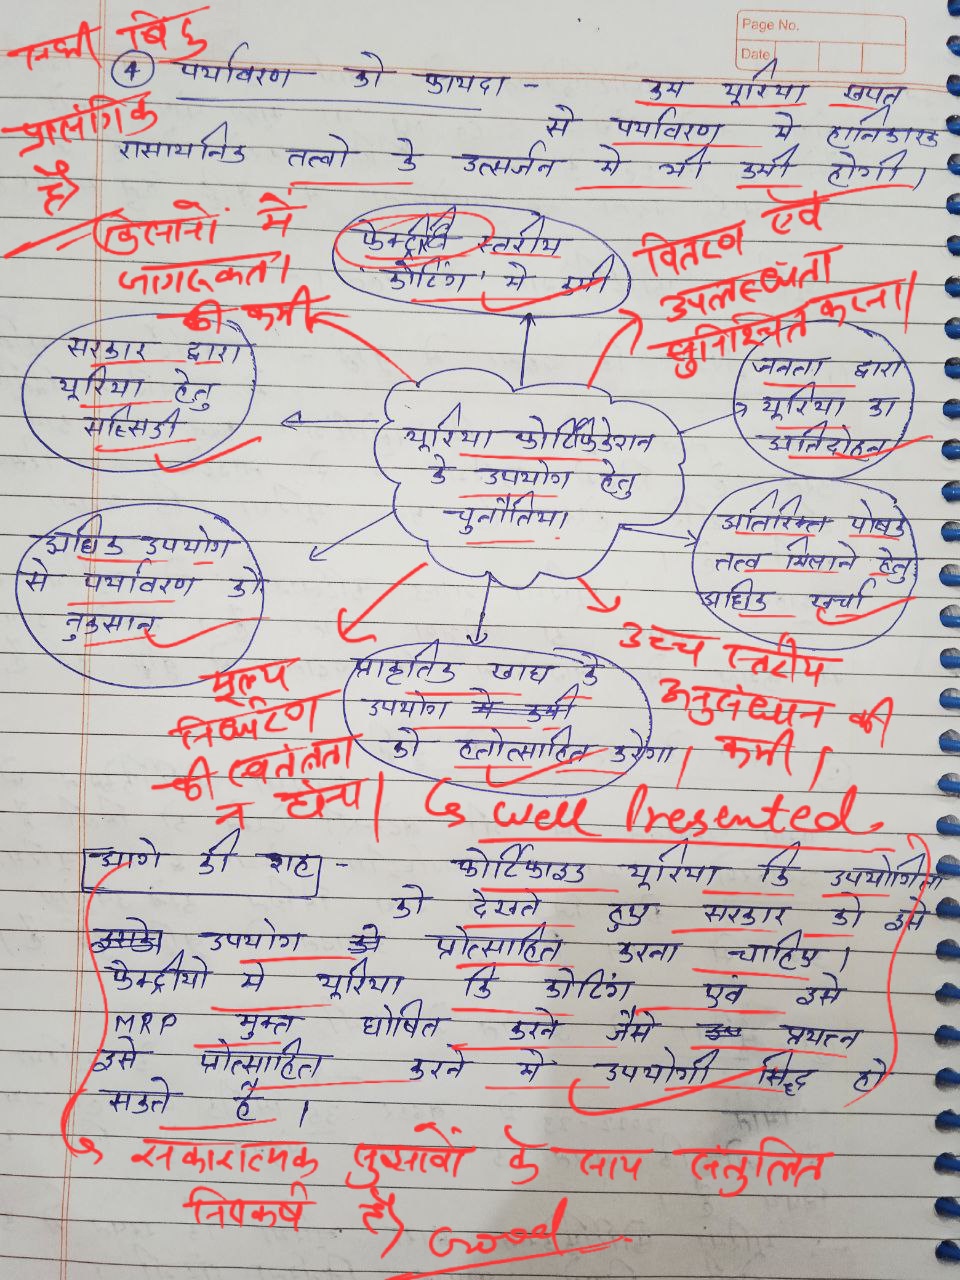 Page No.
Date
सभी बिंदु
प्रासंगिक
है
④ पर्यावरण को फायदा - कम यूरिया खपत
से पर्यावरण मे हानिकारक
रासायनिक तत्वो के उत्सर्जन मे भी कमी होगी।
किसानों में
जागरूकता
की कमी
फेक्ट्री स्तरीय
कोटिंग मे कमी
वितरण एवं
उपलब्धता
सुनिश्चित करना।
सरकार द्वारा
यूरिया हेतु
सब्सिडी
जनता द्वारा
यूरिया का
अतिदोहन
यूरिया फोर्टिफिकेशन
के उपयोग हेतु
चुनौतिया
अधिक उपयोग
से पर्यावरण को
नुकसान
अतिरिक्त पोषक
तत्व मिलाने हेतु
अधिक खर्चा
मूल्य
निर्धारण
की स्वतंत्रता
न होना।
प्राकृतिक खाद्य के
उपयोग मे कमी
को हतोत्साहित करेगा।
उच्च स्तरीय
अनुसंधान की
कमी।
Well Presented
आगे की राह - फोर्टिफाइड यूरिया कि उपयोगिता
को देखते हुए सरकार को इसे
इसके उपयोग को प्रोत्साहित करना चाहिए।
फेक्ट्रीयो मे यूरिया कि कोटिंग एवं इसे
MRP मुक्त घोषित करने जैसे प्रयत्न
इसे प्रोत्साहित करने मे उपयोगी सिद्ध हो
सकते है।
सकारात्मक सुझावों के साथ संतुलित
निष्कर्ष है
Good